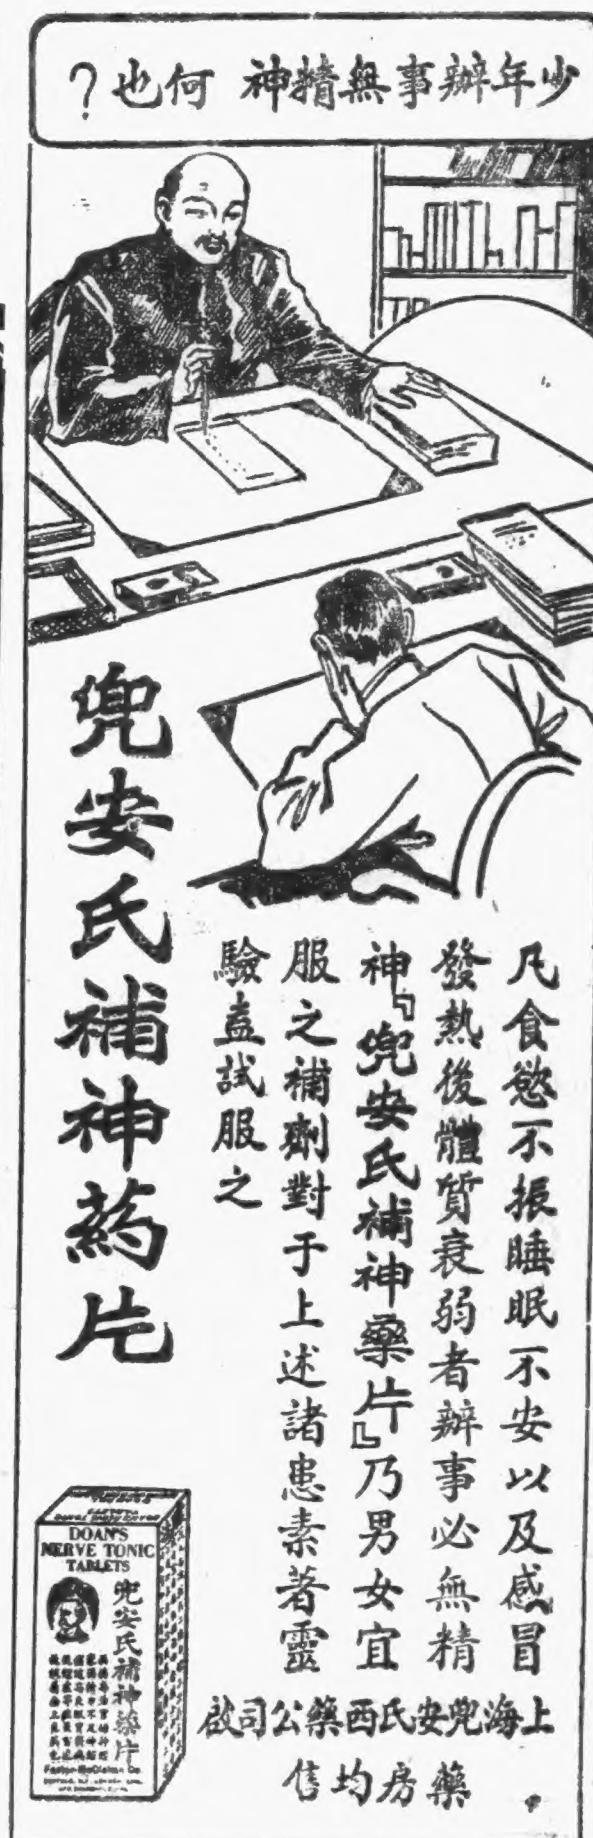 少年辦事無精神 何也?
兜安氏補神药片
凡食慾不振睡眠不安以及感冒
發熱後體質衰弱者辦事必無精
神『兜安氏補神藥片』乃男女宜
服之補劑對于上述諸患素著靈
驗盍試服之
上海兜安氏西藥公司啟
藥房均售
DOAN'S
NERVE TONIC
TABLETS
兜安氏補神藥片
Foster-McClellan Co.